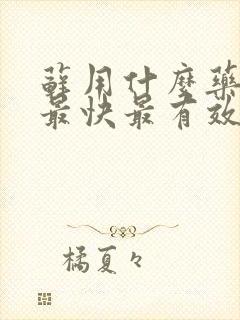 蘚用什麼藥
最快最有效
橘夏々